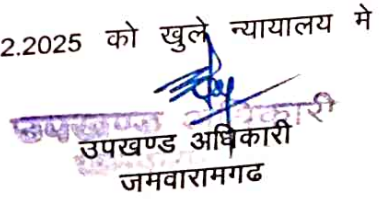 2.2025 को खुले न्यायालय मे
उपखण्ड अधिकारी
उपखण्ड अधिकारी
जमवारामगढ